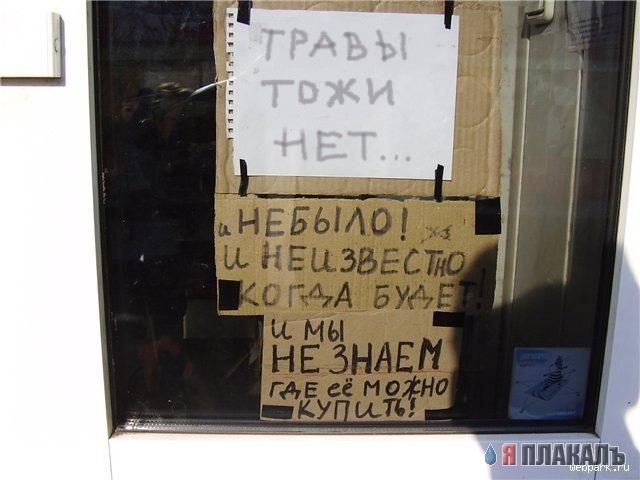 ТРАВЫ
ТОЖИ
НЕТ...
и НЕБЫЛО!
И НЕИЗВЕСТНО
КОГДА БУДЕТ!
И МЫ
НЕ ЗНАЕМ
ГДЕ её МОЖНО
КУПИТЬ!
Я ПЛАКАЛЪ
webpark.ru